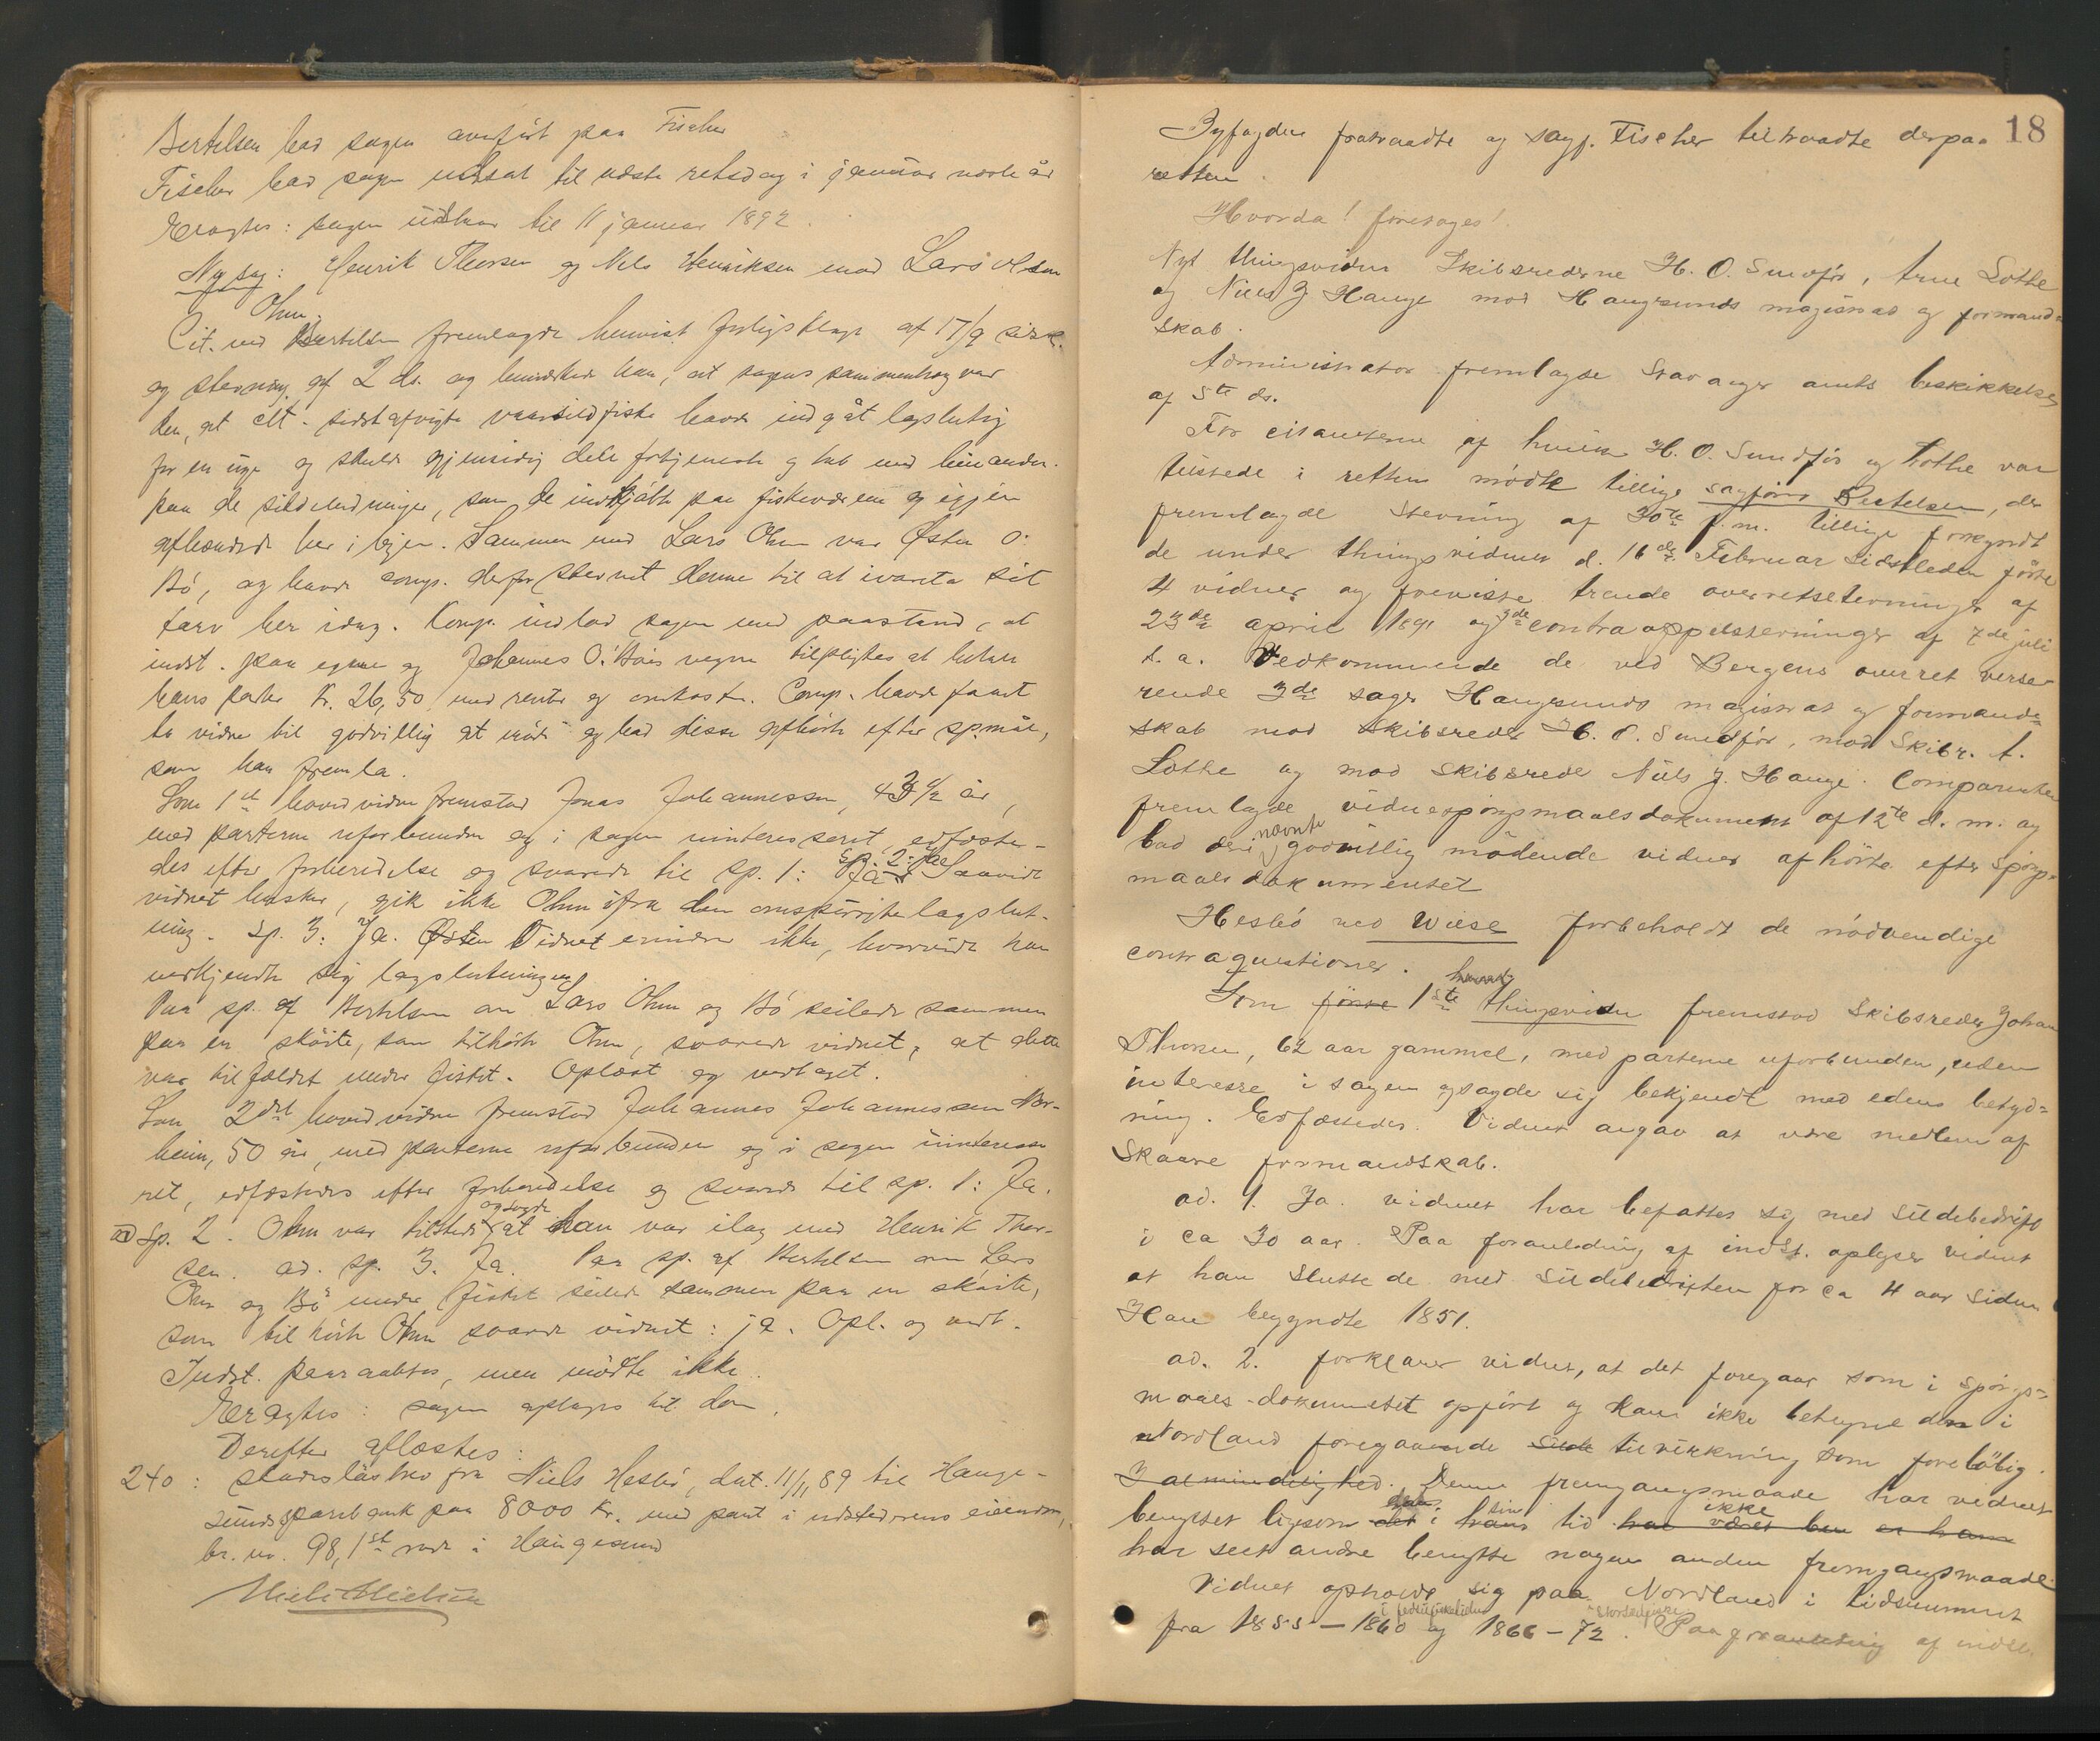 Bertelsen bad sagen anført paa Fischer
Fischer bad sagen udsat til næste retsdag i januar næste år
Eragtes: sagen udstaar til 11 januar 1892.
Ny sag: Henrik Thorsen og Nils Henriksen mod Lars Olsen
Ohm.
Cit. ved Bertelsen fremlagde henvist forligsklage af 17/9 sidstl.
og stevning af 2 ds. og bemærkede han, at sagens sammenhæng var
den, at citt. sidstafvigte vaarsildfiske havde indgåt lagslutning
for en uge og skulde gjensidig dele fortjeneste og tab med hinanden
paa de sildeladninger, som de indkjøbte paa fiskeværene og igjen
afhændede her i byen. Sammen med Lars Ohm var Østen O.
Bö, og havde comp. derfor stevnet denne til at ivareta sit
tarv her idag. Comp. indlod sagen med paastand, at
indst. paa egne og Johannes O. Böes vegne tilpligtes at betale
hans parter Kr. 26,50 med renter og omkostn. Comp. havde formt
to vidner til godvillig at möde og bad disse afhørt efter sp.mål,
som han fremla.
Som 1st hovedvidne fremstod Jonas Johannessen, 43 1/2 år,
med parterne uforbunden og i sagen uinteresseret, edfæste-
des efter forberedelse og svarede til sp. 1: Ja. Sp. 2: Saavidt
vidnet husker, gik ikke Ohm ifra den omspurgte lagslut-
ning. Sp. 3: Ja. Østen Vidnet erindrer ikke, hvorvidt han
vedkjendte sig lagslutningen
Paa sp. af Bertelsen om Lars Ohm og Bö seilede sammen
paa en sköite, som tilhörte Ohm, svarede vidnet, at dette
var tilfældet under fisket. Oplæst og vedtaget.
Som 2det hovedvidne fremstod Johannes Johannessen Nor-
heim, 50 år, med parterne uforbunden og i sagen uinteresse-
ret, edfæstedes efter forberedelse og svarede til sp. 1: Ja.
ad Sp. 2. Ohm var tilstede og sagde at han var ilag med Henrik Thor-
sen. ad. sp. 3. Ja. Paa sp. af Bertelsen om Lars
Ohm og Bö under fisket seilede sammen paa en sköite,
som tilhörte Ohm svarede vidnet: ja. Opl. og vedt.
Indst. paaraabtes, men mödte ikke.
Eragtes: sagen optages til dom.
Derefter aflæstes:
240: skadesløsbrev fra Niels Hesbö, dat. 11/11 89 til Hauge-
sunds sparebank paa 8000 Kr. med pant i udstederens eiendom,
br. nr. 98, 1st rode i Haugesund
18
Byfogden fratraadte og sagf. Fischer tiltraadte derpaa
retten.
Hvorda! foretoges!
Nyt thingsvidne Skibsrederne H. O. Sundför, Arne Lothe
og Niels J Hauge mod Haugesunds magistrat og formand=
skab.
Administrator fremlagde Stavanger amts beskikkelse
af 5te ds.
For citanterne af hvilke H. O. Sundför og Lothe var
tilstede i retten mödte tillige sagförer Bertelsen, der
fremlagde stevning af 30te f.m. tillige forkyndt
de under thingsvidnet d. 16de Februar sidstleden förte
4 vidner og foreviste trende overretsstevninger af
23de april 1891 og 3de contraappelstevninger af 7de juli
s.a. Vedkommende de ved Bergens overret verse-
rende 3de sager Haugesunds magistrat og formands=
skab mod Skibsreder H. O. Sundför, mod Skibr. A.
Lothe og mod skibsreder Niels J. Hauge. Comparenten
fremlagde vidnespörgsmaalsdokument af 12te d.m. og
bad de i nævnte godvillig mödende vidner afhörte efter spörgs-
maalsdokumentet
Hesbö ved Wiese forbeholdt de nödvendige
contraquestioner.
Som förste 1ste thingsvidne fremstod Skibsreder Johan
Thorsen, 62 aar gammel, med parterne uforbunden, uden
interesse i sagen og sagde sig bekjendt med edens betyd=
ning. Edfæstedes. Vidnet angav at være medlem af
Skaare formandskab.
ad. 1. Ja. vidnet har befattet sig med Sildebedrift
i ca 30 aar. Paa foranledning af indst. oplyser vidnet
at han sluttede med Sildebedriften for ca 4 aar siden
Han begyndte 1851.
ad. 2. forklarer vidnet, at det foregaar som i spörgs=
maals-dokumentet opfört og kan ikke betegne den i
Nordland foregaaende silde tilvirkning som forelöbig.
I almindelighed. Denne fremgangsmaade har vidnet
benyttet ligesom det i hans sin tid har været ben er ham ikke
har seet andre benytte nogen anden fremgangsmaade.
Vidnet opholdt sig paa Nordland i tidsrummet
i fedsildfisketiden storsildfiske
fra 1855-1860 og 1866-72. Paa foranledning af indst.